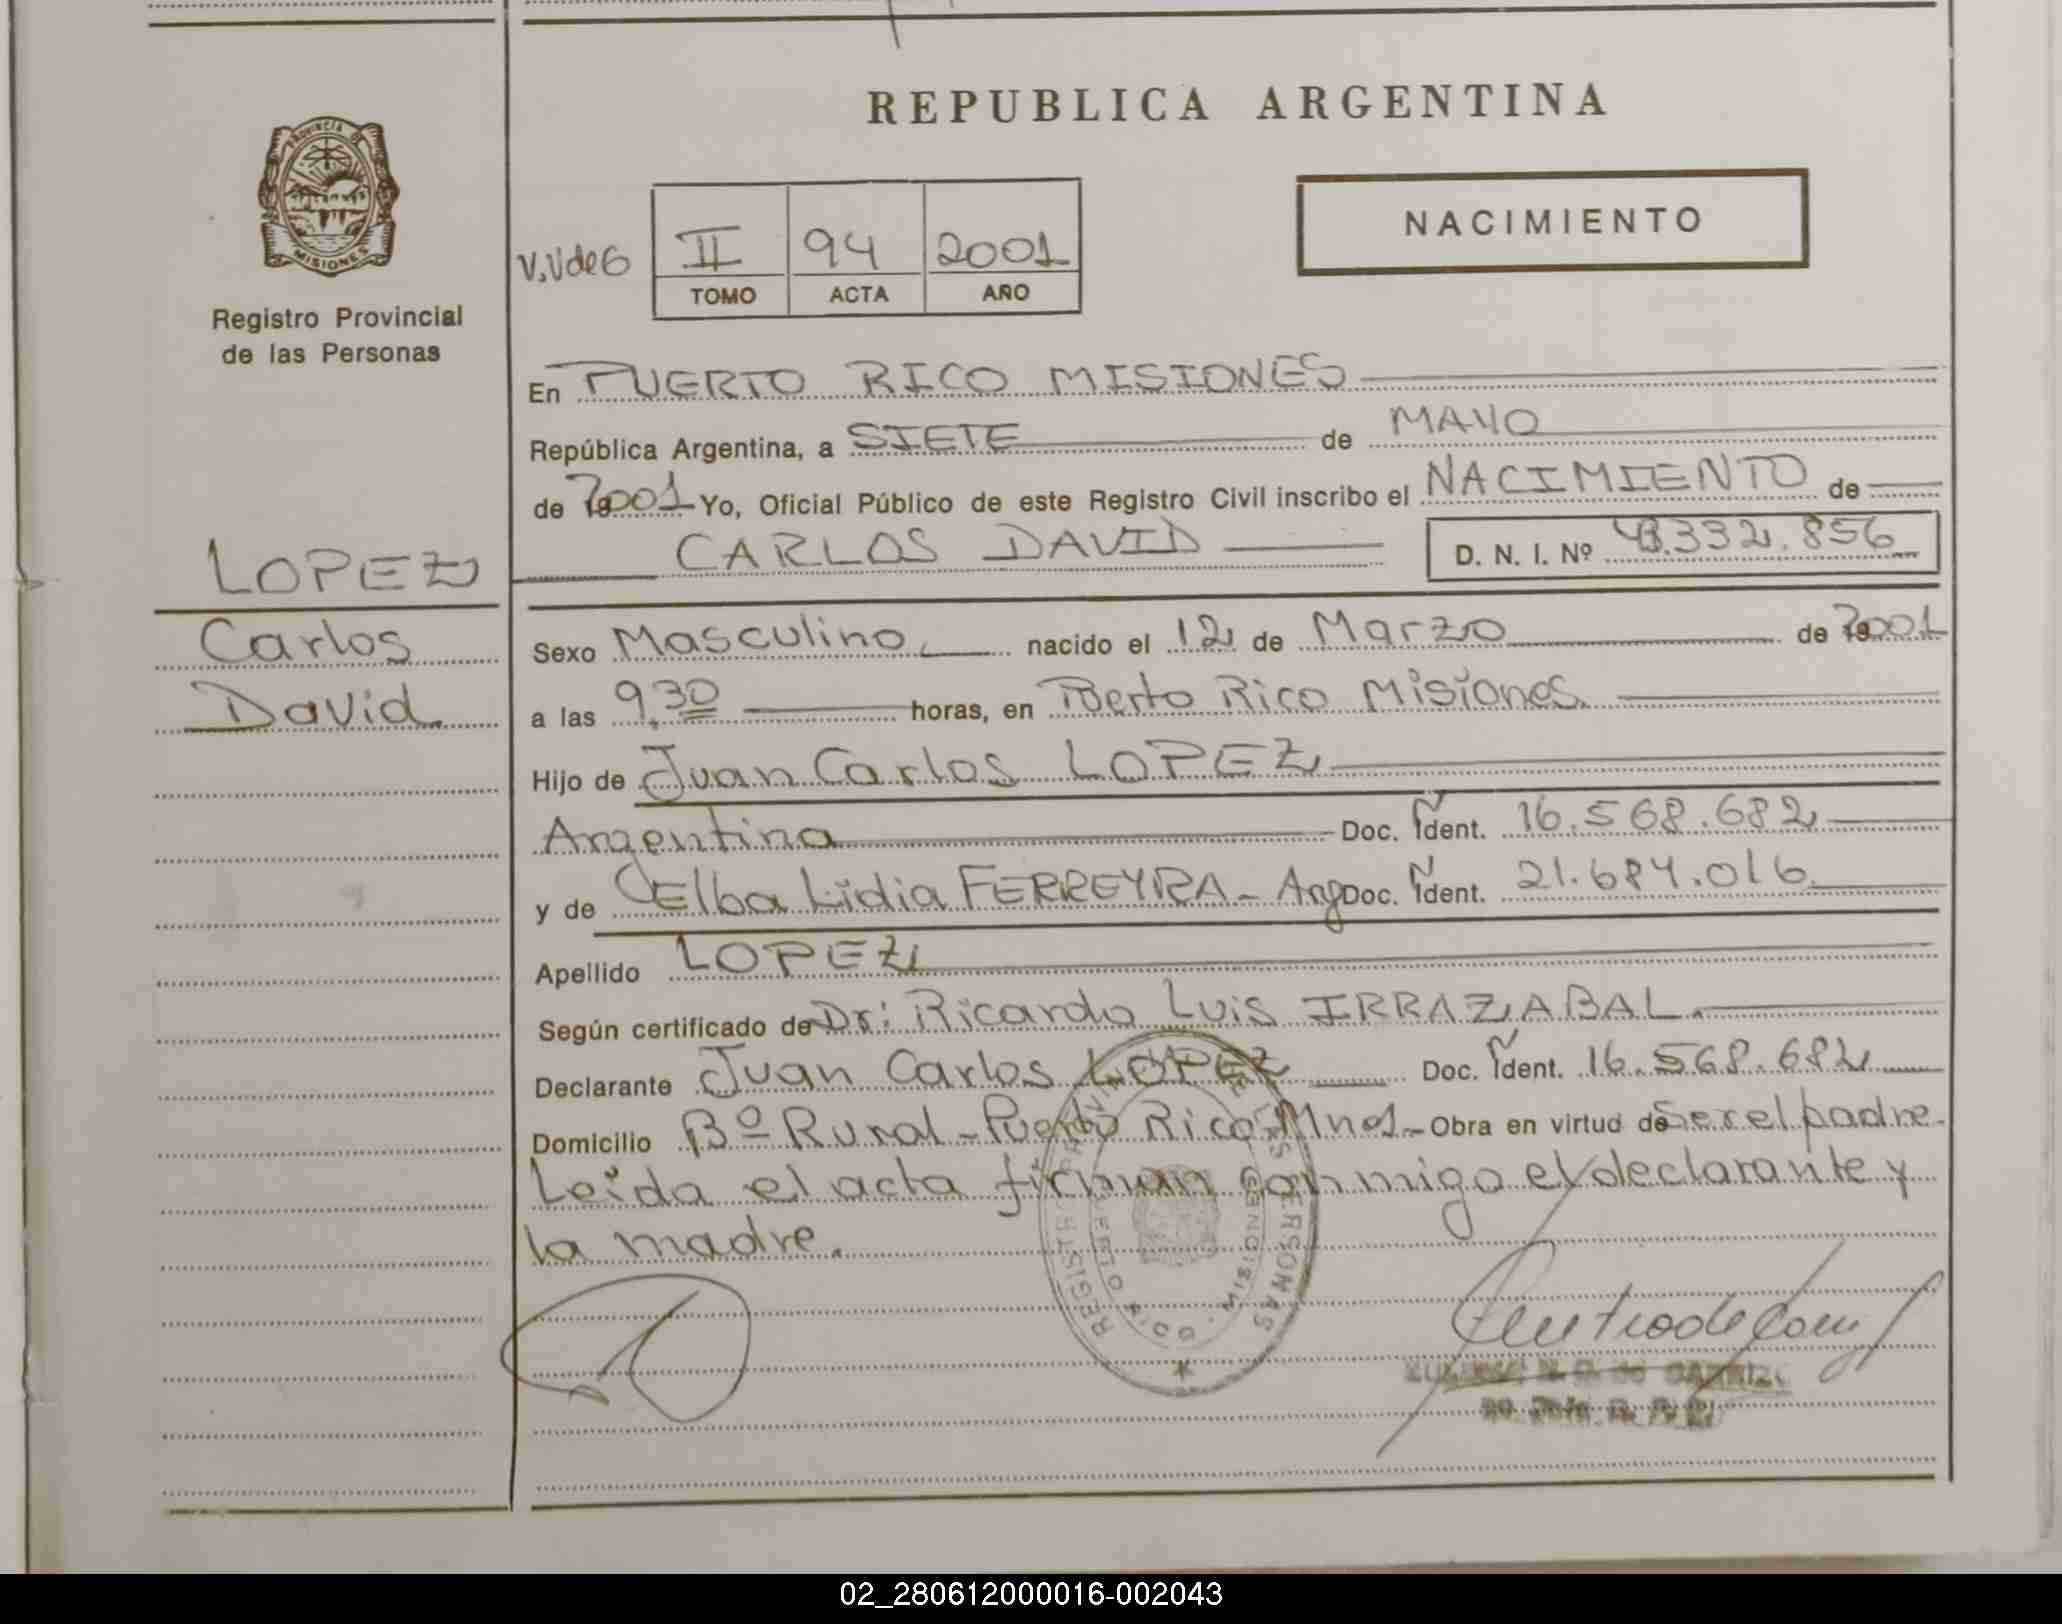 REPUBLICA ARGENTINA
PROVINCIA DE
MISIONES
NACIMIENTO
V.V de G
II 94 2001
TOMO ACTA AÑO
Registro Provincial
de las Personas
En PUERTO RICO MISIONES
República Argentina, a SIETE de MAYO
de 2001 Yo, Oficial Público de este Registro Civil inscribo el NACIMIENTO de
CARLOS DAVID D. N. I. Nº 43.332.856
LOPEZ
Carlos
David
Sexo Masculino nacido el 12 de Marzo de 2001
a las 9,30 horas, en Puerto Rico Misiones
Hijo de Juan Carlos LOPEZ
Argentina Doc. Ident. 16.568.682
y de Elba Lidia FERREYRA - Arg Doc. Ident. 21.684.016
Apellido LOPEZ
Según certificado de Dr: Ricardo Luis IRRAZABAL
Declarante Juan Carlos LOPEZ Doc. Ident. 16.568.682
Domicilio Bº Rural - Puerto Rico Mnes - Obra en virtud de Ser el padre.
Leida el acta firman conmigo el declarante y
la madre.
REGISTRO PROVINCIAL DE LAS PERSONAS
PUERTO RICO · MISIONES
02_280612000016-002043